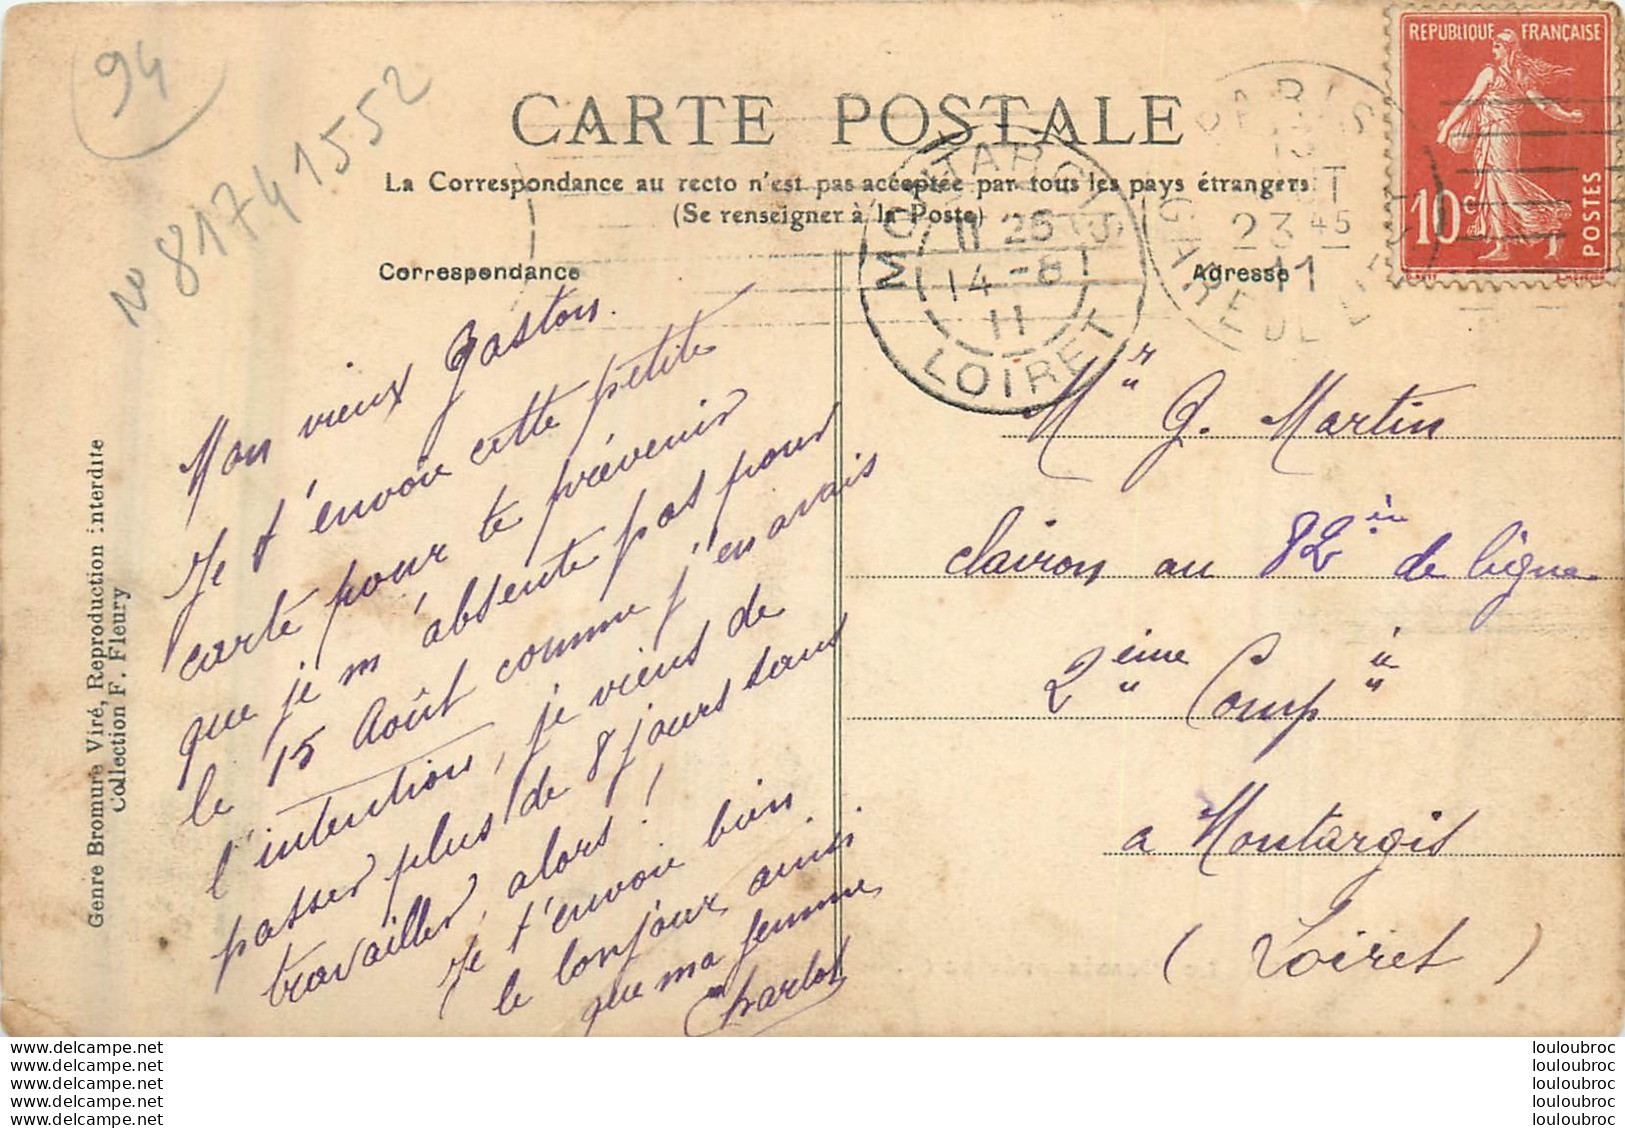 94
No 81741552
CARTE POSTALE
La Correspondance au recto n'est pas acceptée par tous les pays étrangers
(Se renseigner à la Poste)
Correspondance
Adresse
REPUBLIQUE FRANÇAISE
10c
POSTES
MONTARGIS
11 25
14-8
11
LOIRET
PARIS
13
23 45
11
GARE
Mon vieux Gaston.
Je t'envoie cette petite
carte pour te prévenir
que je m'absente pas pour
le 15 Août comme j'en avais
l'intention, je viens de
passer plus de 8 jours sans
travailler, alors !
Je t'envoie bien
le bonjour ainsi
que ma femme
Charlot
Mr G. Martin
clairon au 82in de ligne
2ème Comp
a Montargis
( Loiret )
Genre Bromure Viré, Reproduction interdite
Collection F. Fleury
www.delcampe.net
www.delcampe.net
www.delcampe.net
www.delcampe.net
www.delcampe.net
louloubroc
louloubroc
louloubroc
louloubroc
louloubroc